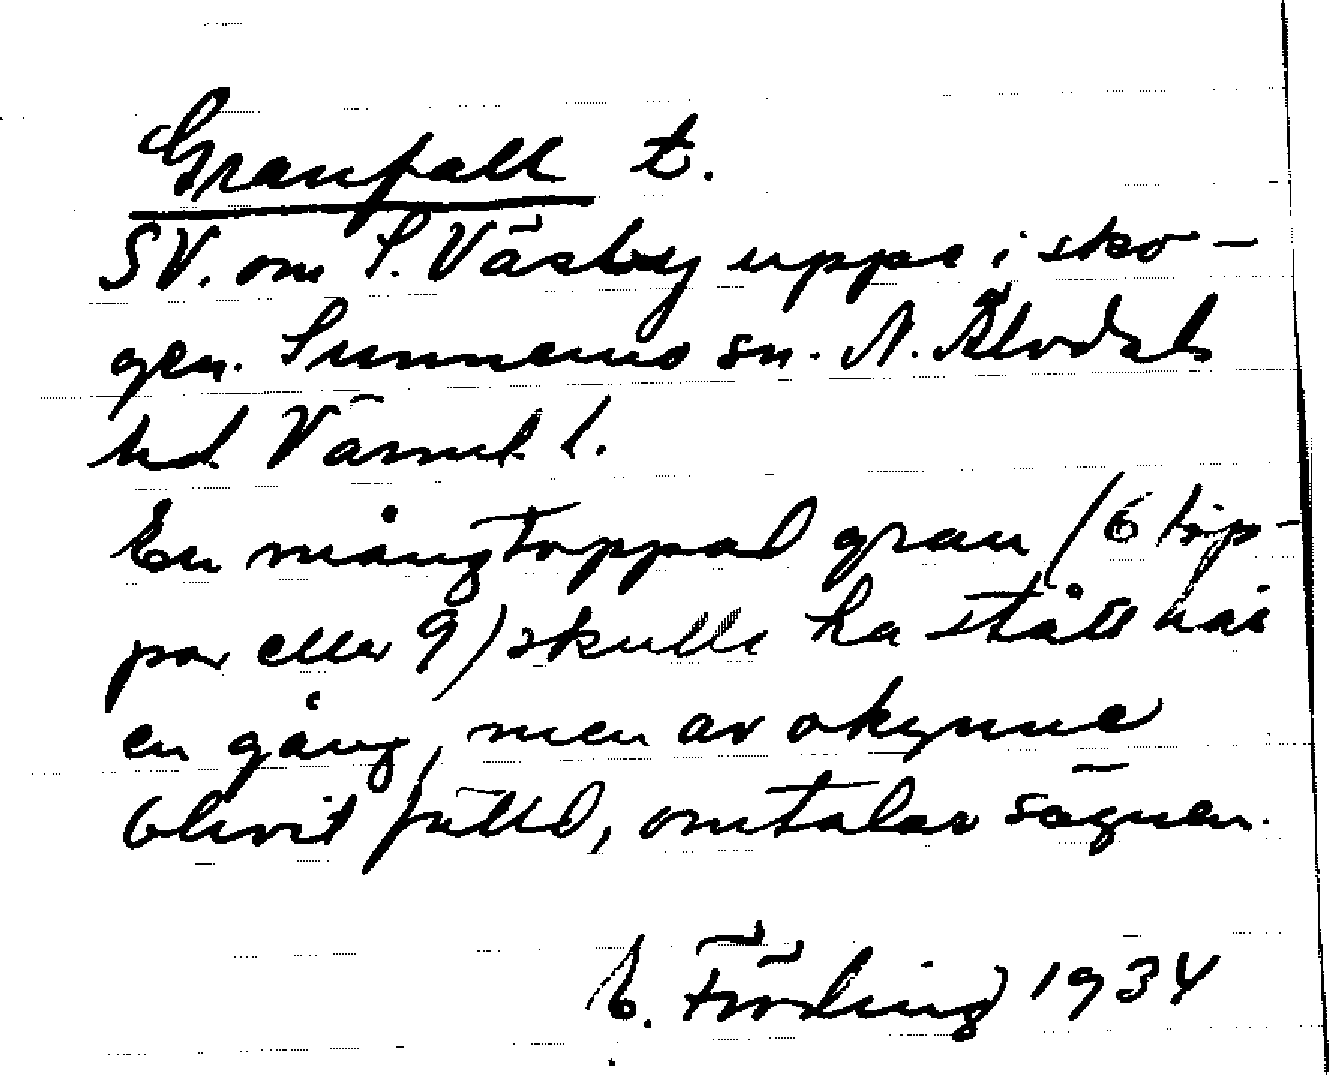 Granfall t.
SV. om S. Väsby uppe i sko-
gen. Sunnemo sn. N. Älvdals
hd Värml l.
En mångtoppad gran (6 top-
par eller 9) skulle ha stått här
en gång, men av okynne
blivit fälld, omtalar sägnen.
E. Fröding 1934